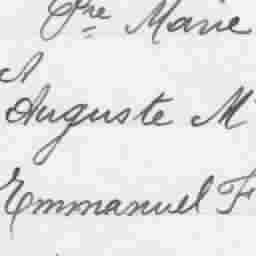 Pre Marie
A
Auguste M
Emmanuel F